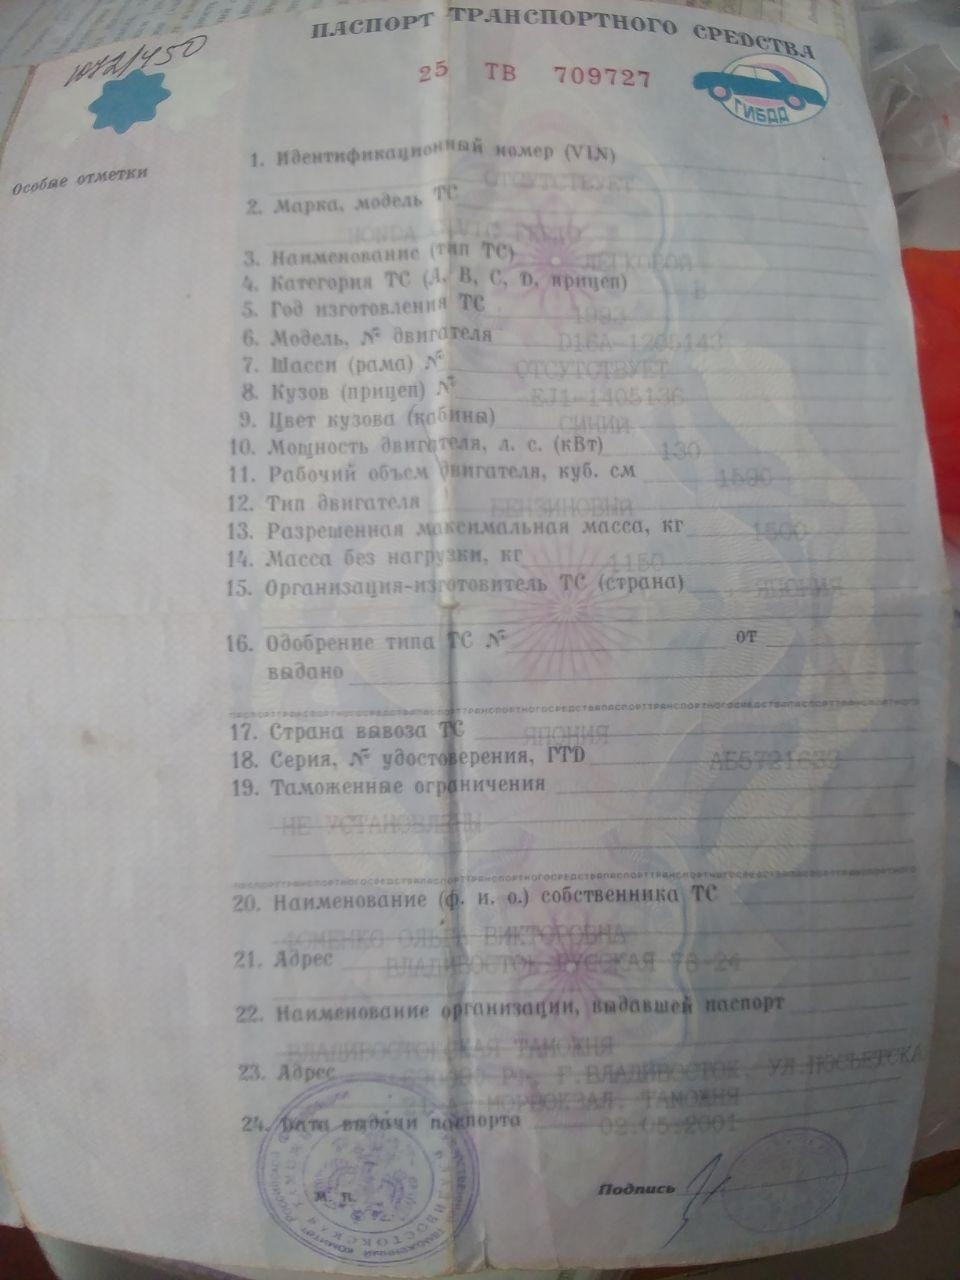 1072/450
ПАСПОРТ ТРАНСПОРТНОГО СРЕДСТВА
25 ТВ 709727
ГИБДД
Особые отметки
1. Идентификационный номер (VIN)
ОТСУТСТВУЕТ
2. Марка, модель ТС
HONDA CIVIC FERIO
3. Наименование (тип ТС) ЛЕГКОВОЙ
4. Категория ТС (А, В, С, D, прицеп) В
5. Год изготовления ТС 1993
6. Модель, № двигателя D16A-1205143
7. Шасси (рама) № ОТСУТСТВУЕТ
8. Кузов (прицеп) № EJ1-1405136
9. Цвет кузова (кабины) СИНИЙ
10. Мощность двигателя, л. с. (кВт) 130
11. Рабочий объем двигателя, куб. см 1590
12. Тип двигателя БЕНЗИНОВЫЙ
13. Разрешенная максимальная масса, кг 1500
14. Масса без нагрузки, кг 1150
15. Организация-изготовитель ТС (страна) ЯПОНИЯ
16. Одобрение типа ТС № от
выдано
17. Страна вывоза ТС ЯПОНИЯ
18. Серия, № удостоверения, ГТD
19. Таможенные ограничения
НЕ УСТАНОВЛЕНЫ
20. Наименование (ф. и. о.) собственника ТС
ФОМЕНКО ОЛЬГА ВИКТОРОВНА
21. Адрес ВЛАДИВОСТОК РУССКАЯ 78-24
22. Наименование организации, выдавшей паспорт
ВЛАДИВОСТОКСКАЯ ТАМОЖНЯ
23. Адрес 690090 РФ, Г.ВЛАДИВОСТОК, УЛ.ПОСЬЕТСКА
МОРВОКЗАЛ, ТАМОЖНЯ
24. Дата выдачи паспорта 02.05.2001
М. П.
Подпись